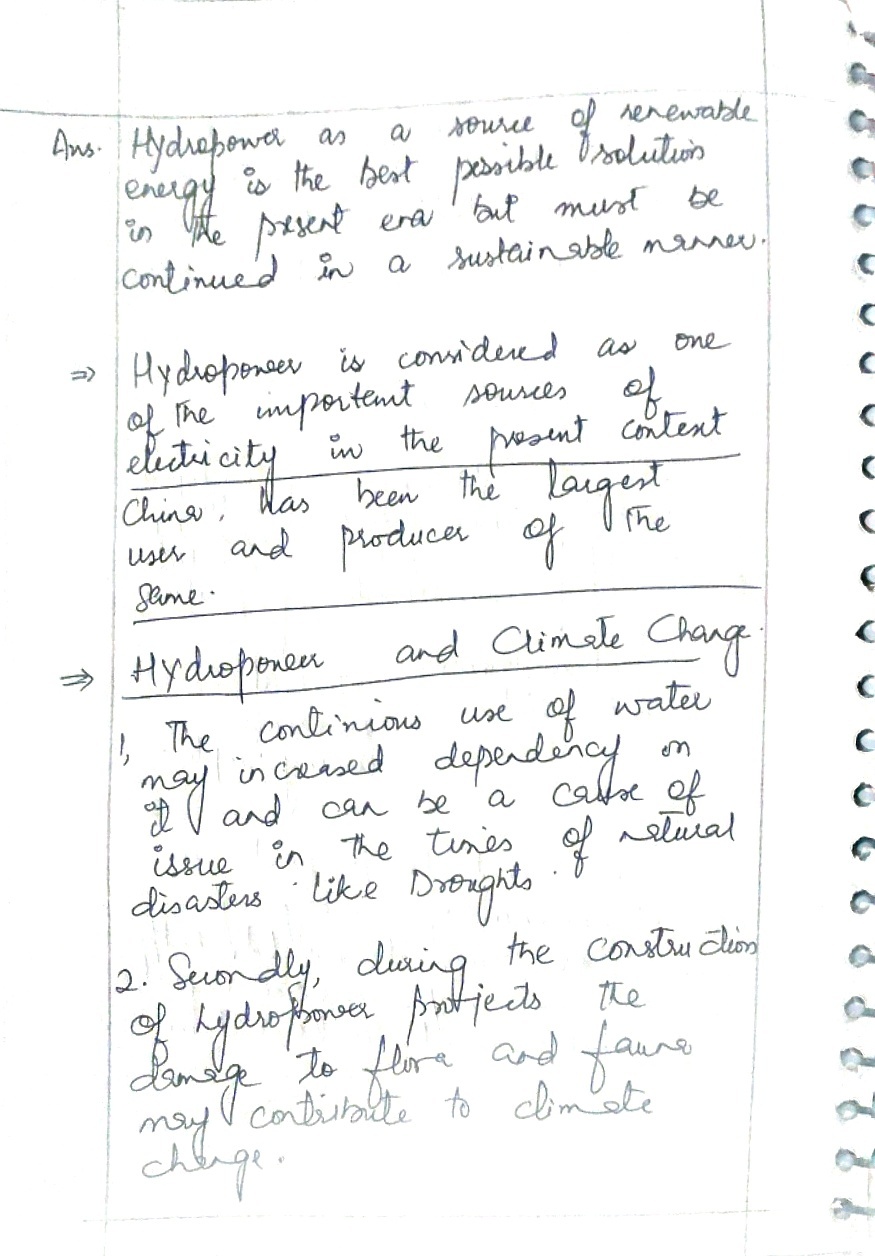 Ans. Hydropower as a source of renewable
energy is the best possible solution
in the present era but must be
continued in a sustainable manner.
⇒ Hydropower is considered as one
of the importent sources of
electricity in the present content
China, has been the largest
user and producer of the
same.
⇒ Hydropower and Climate Change.
1, The continious use of water
may increased dependency on
it and can be a cause of
issue in the times of natural
disasters like Droughts.
2. Secondly, during the construction
of hydropower projects the
damage to flora and fauna
may contribute to climate
change.